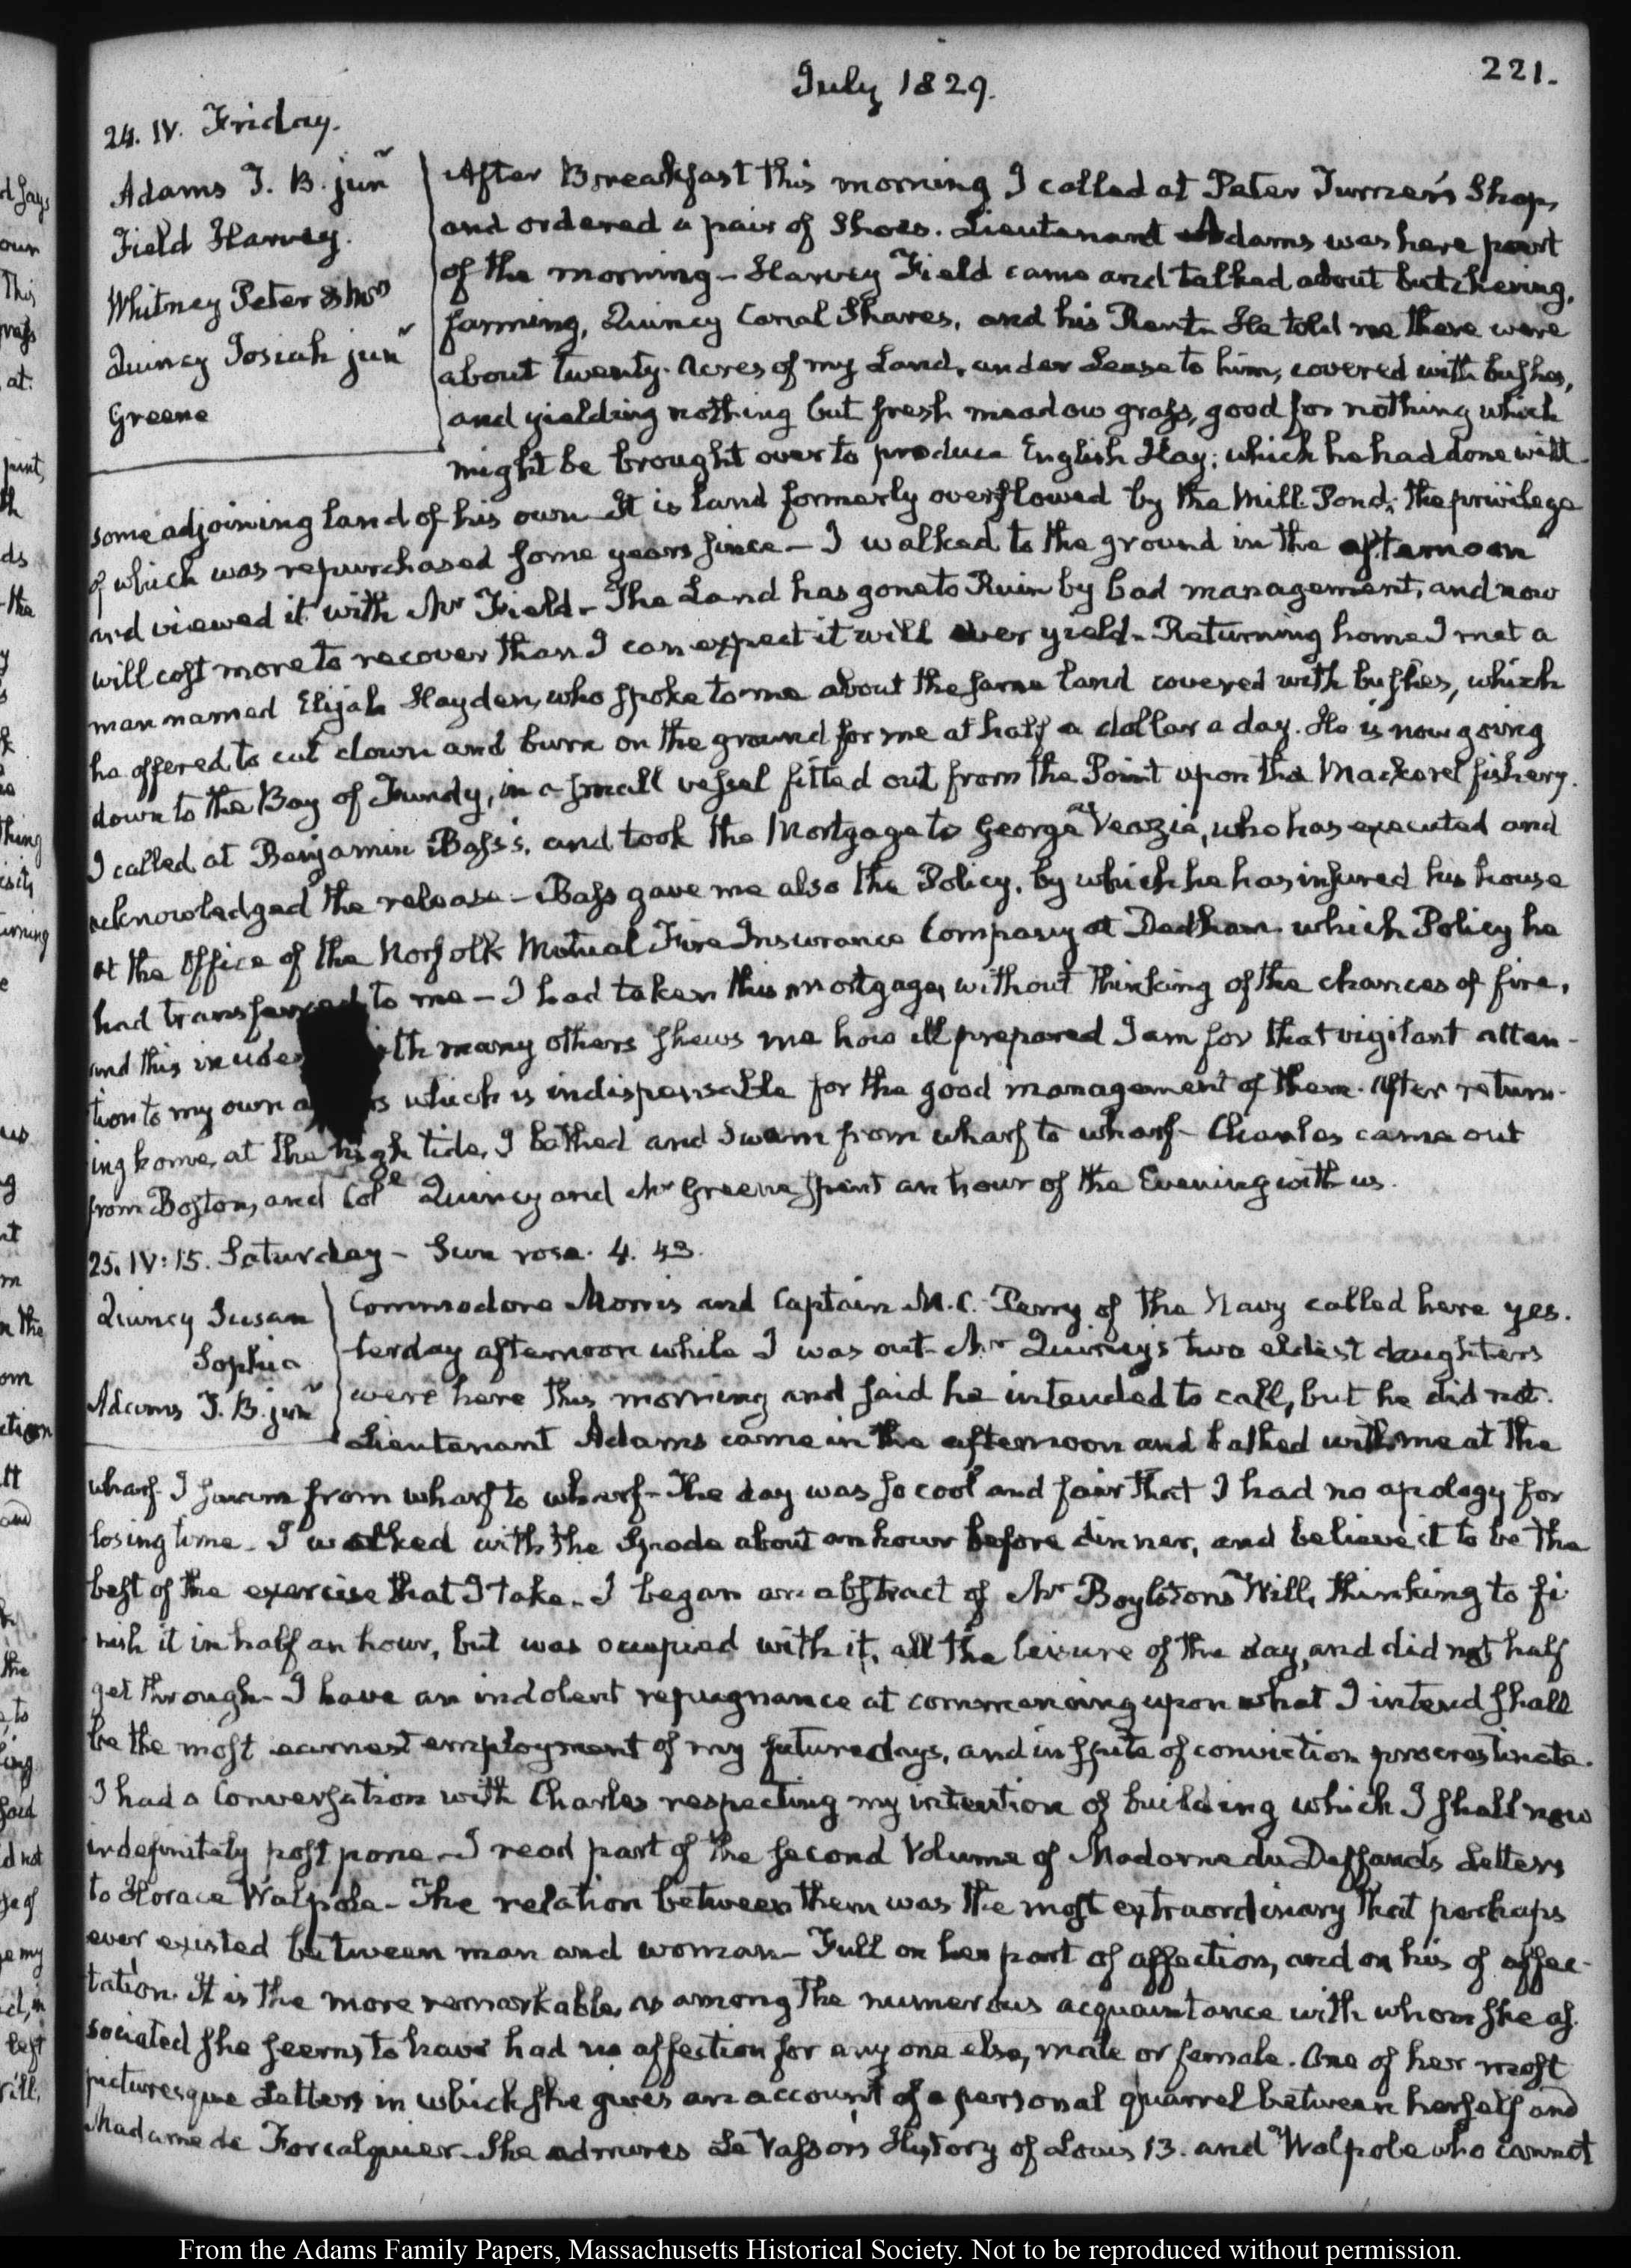 July 1829.
221.
24. IV. Friday.
Adams J. B. junr
Field Harvey.
Whitney Peter & Mrs
Quincy Josiah junr
Greene
After Breakfast this morning I called at Peter Turner's Shop,
and ordered a pair of Shoes. Lieutenant Adams was here part
of the morning — Harvey Field came and talked about butchering,
farming, Quincy Canal Shares, and his Rent. He told me there were
about twenty Acres of my Land, under Lease to him, covered with bushes,
and yielding nothing but fresh meadow grass, good for nothing which
might be brought over to produce English Hay; which he had done with
some adjoining land of his own — It is land formerly overflowed by the Mill Pond; the privilege
of which was repurchased some years since — I walked to the ground in the afternoon
and viewed it with Mr Field — The Land has gone to Ruin by bad management, and now
will cost more to recover than I can expect it will ever yield — Returning home I met a
man named Elijah Hayden, who spoke to me about the same land covered with bushes, which
he offered to cut down and burn on the ground for me at half a dollar a day. He is now going
down to the Bay of Fundy, in a small vessel fitted out from the Point upon the Mackerel fishery.
I called at Benjamin Bass's, and took the Mortgage to George Veazie, who has executed and
acknowledged the release — Bass gave me also the Policy, by which he has insured his house
at the Office of the Norfolk Mutual Fire Insurance Company at Dedham which Policy he
had transferred to me — I had taken this mortgage, without thinking of the chances of fire,
and this many others shews me how ill prepared I am for that vigilant atten-
tion to my own which is indispensable for the good management of them. After return-
ing home, at the high tide, I bathed and swam from wharf to wharf — Charles came out
from Boston, and Coll Quincy and Mr Greene spent an hour of the Evening with us.
25. IV: 15. Saturday — Sun rose 4. 43.
Quincy Susan
Sophia
Adams J. B. junr
Commodore Morris and Captain M. C. Perry of the Navy called here yes-
terday afternoon while I was out — Mr Quincy's two eldest daughters
were here this morning and said he intended to call, but he did not.
Lieutenant Adams came in the afternoon and bathed with me at the
wharf. I swam from wharf to wharf — The day was so cool and fair that I had no apology for
losing time — I worked with the Spade about an hour before dinner, and believe it to be the
best of the exercise that I take — I began an abstract of Mr Boylston's Will, thinking to fi-
nish it in half an hour, but was occupied with it, all the leisure of the day, and did not half
get through — I have an indolent repugnance at commencing upon what I intend shall
be the most earnest employment of my future days, and in spite of conviction procrastinate.
I had a Conversation with Charles respecting my intention of building which I shall now
indefinitely postpone — I read part of the second Volume of Madame du Deffand's Letters
to Horace Walpole — The relation between them was the most extraordinary that perhaps
ever existed between man and woman — Full on her part of affection, and on his of affec-
tation. It is the more remarkable, as among the numerous acquaintance with whom she as-
sociated she seems to have had no affection for any one else, male or female. One of her most
picturesque Letters in which she gives an account of a personal quarrel between herself and
Madame de Forcalquier — She admires Le Vassor's History of Louis 13. and Walpole who cannot
From the Adams Family Papers, Massachusetts Historical Society. Not to be reproduced without permission.